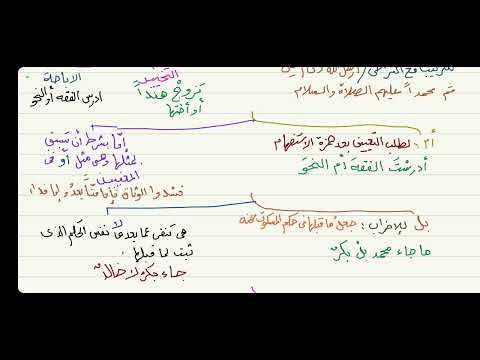 التخيير
الإباحة
ثم محمداً عليهم الصلاة والسلام
تزوجْ هنداً
أو أختها
ادرس الفقه أو النحو
أم : لطلب التعيين بعد همزة الاستفهام
أدرستَ الفقهَ أم النحوَ
إمّا بشرط أن تسبق
بمثلها وهي مثل أو في
المعنيين
فشدوا الوثاق فإما منّاً بعدُ وإما فداءً
بل للإضراب : جعل ما قبلها في حكم المسكوت عنه
ما جاء محمد بلْ بكرٌ
لا
هي تنفي عما بعدها نفس الحكم الذي
ثبت لما قبلها
جاء بكرٌ لا خالدٌ